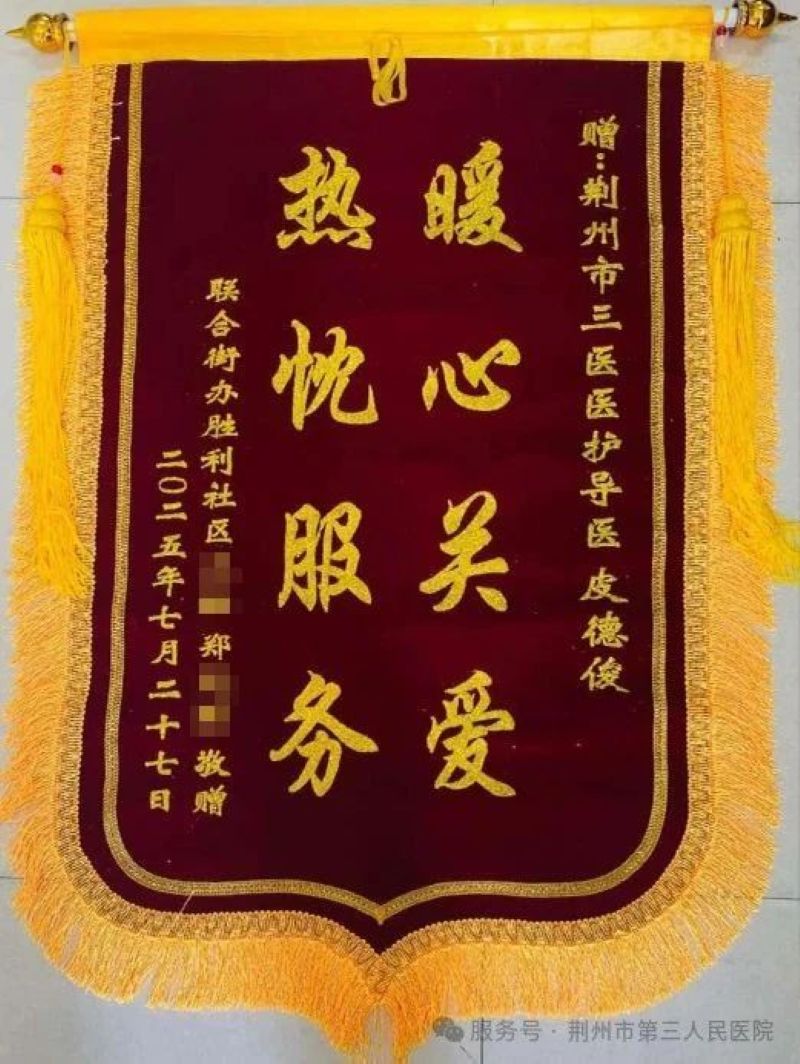 赠：荆州市三医医护导医 皮德俊
暖心关爱
热忱服务
联合街办胜利社区 郑 敬赠
二〇二五年七月二十七日
服务号·荆州市第三人民医院